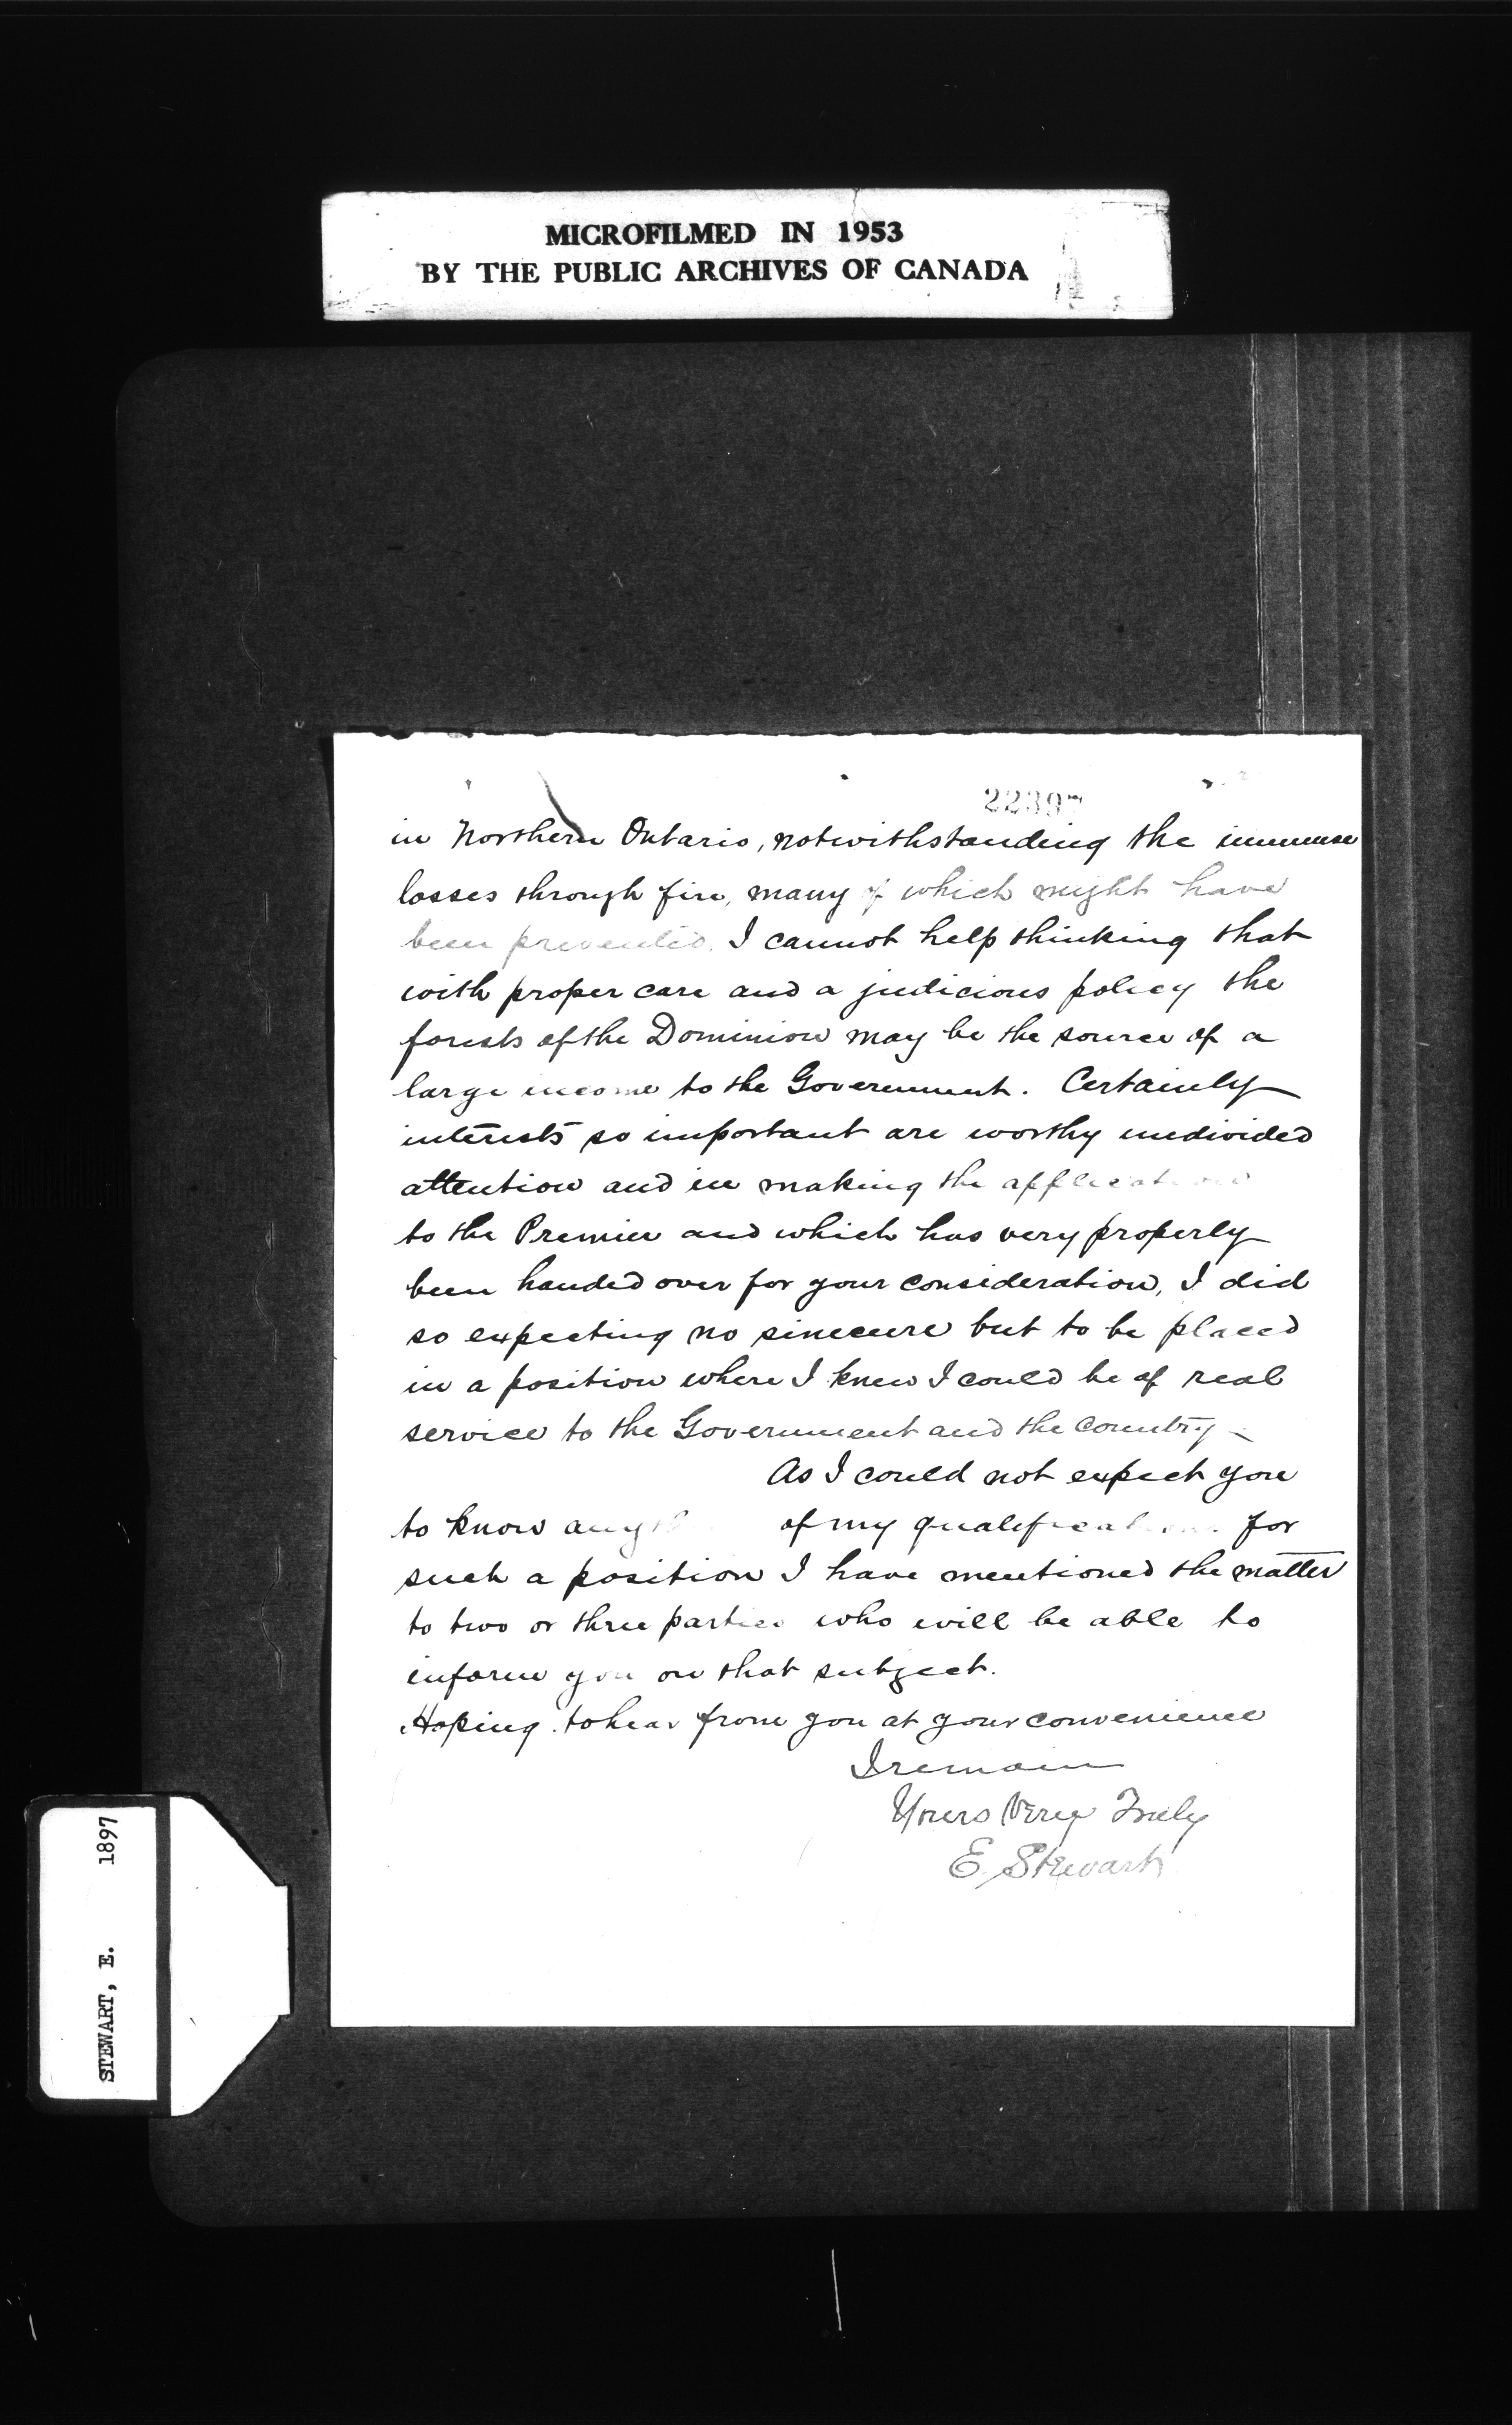 MICROFILMED IN 1953
BY THE PUBLIC ARCHIVES OF CANADA
22397
in Northern Ontario, notwithstanding the immense
losses through fire, many of which might have
been prevented, I cannot help thinking that
with proper care and a judicious policy the
forests of the Dominion may be the source of a
large income to the Government. Certainly
interests so important are worthy undivided
attention and in making the application
to the Premier and which has very properly
been handed over for your consideration, I did
so expecting no sinecure but to be placed
in a position where I knew I could be of real
service to the Government and the Country -
As I could not expect you
to know of my qualifications for
such a position I have mentioned the matter
to two or three parties who will be able to
inform you on that subject.
Hoping to hear from you at your convenience
I remain
Yours Very Truly
E. Stewart
STEWART, E. 1897